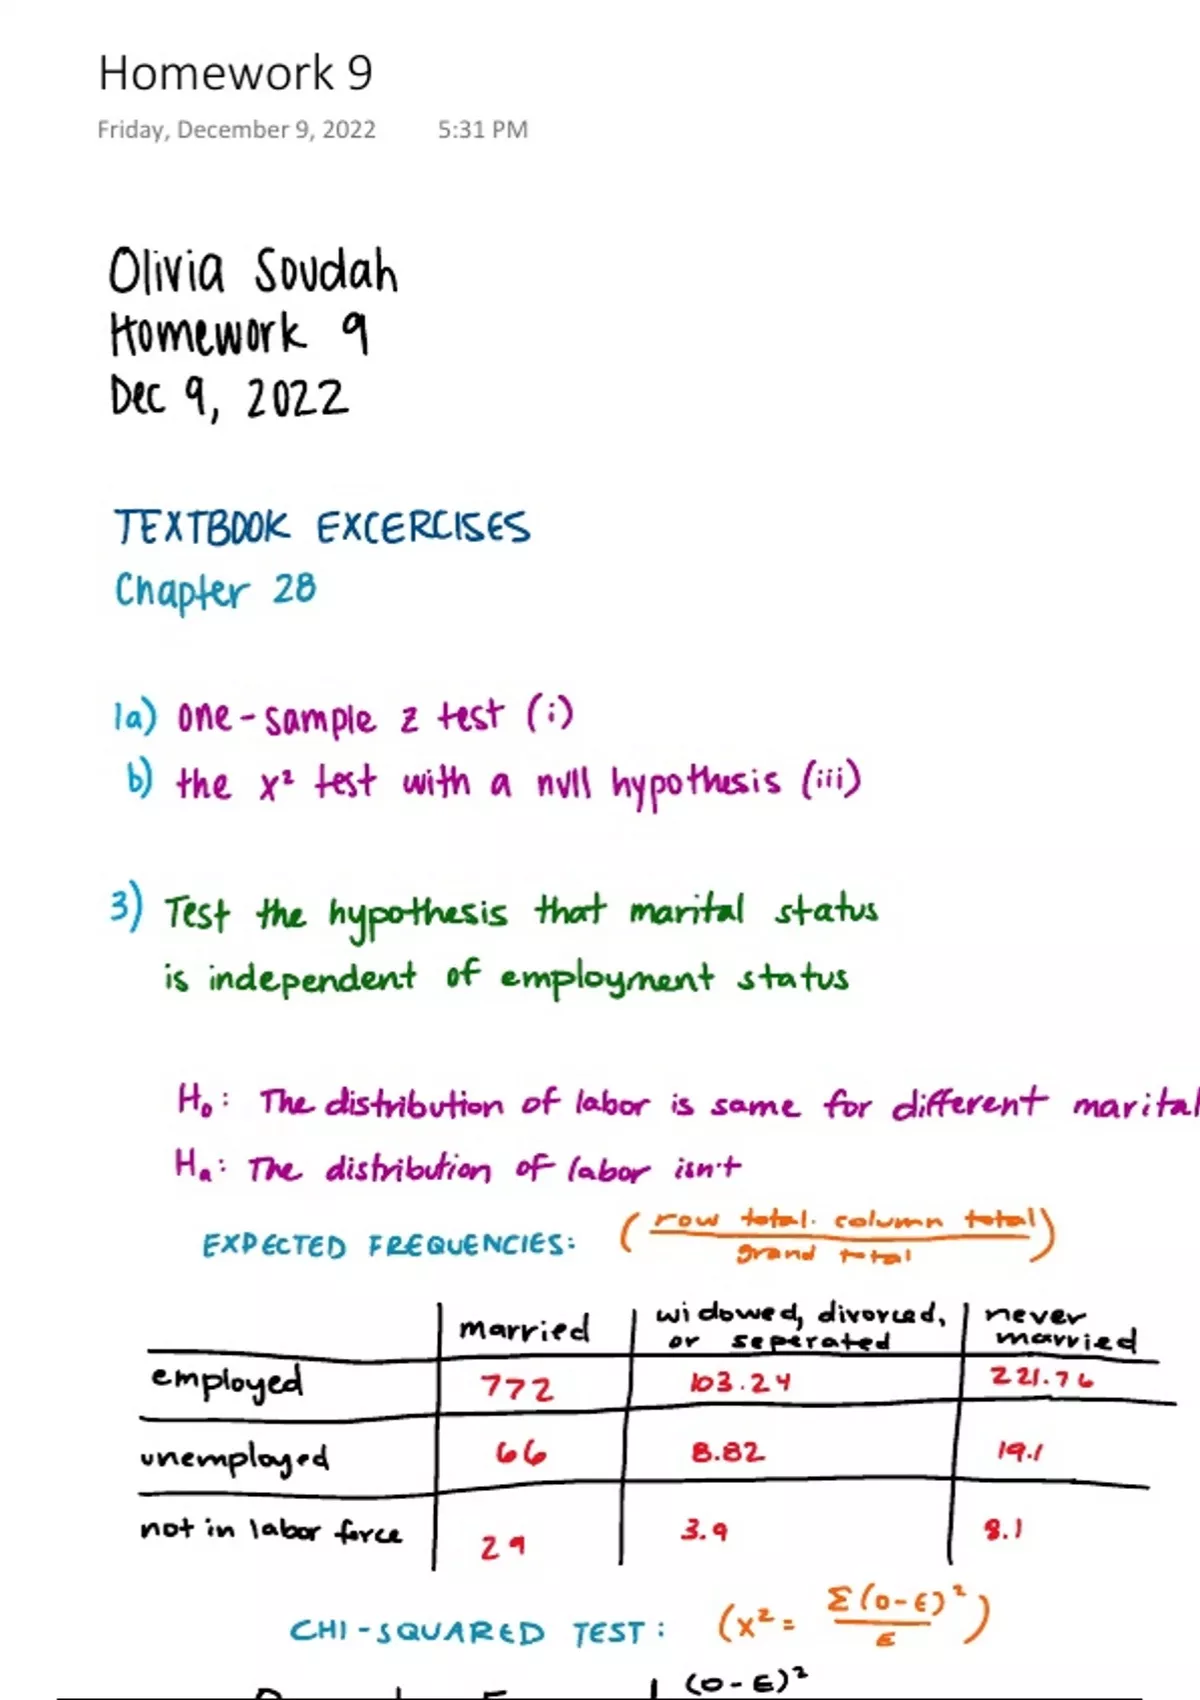 Homework 9
Friday, December 9, 2022 5:31 PM
Olivia Soudah
Homework 9
Dec 9, 2022
TEXTBOOK EXCERCISES
Chapter 28
1a) one-sample z test (i)
b) the x² test with a null hypothesis (iii)
3) Test the hypothesis that marital status
is independent of employment status
H₀: The distribution of labor is same for different marital
Hₐ: The distribution of labor isn't
EXPECTED FREQUENCIES: (row total · column total / grand total)
married | widowed, divorced, or seperated | never married
employed | 772 | 103.24 | 221.76
unemployed | 66 | 8.82 | 19.1
not in labor force | 29 | 3.9 | 8.1
CHI-SQUARED TEST: (x² = Σ(O-E)² / E)
(O-E)²